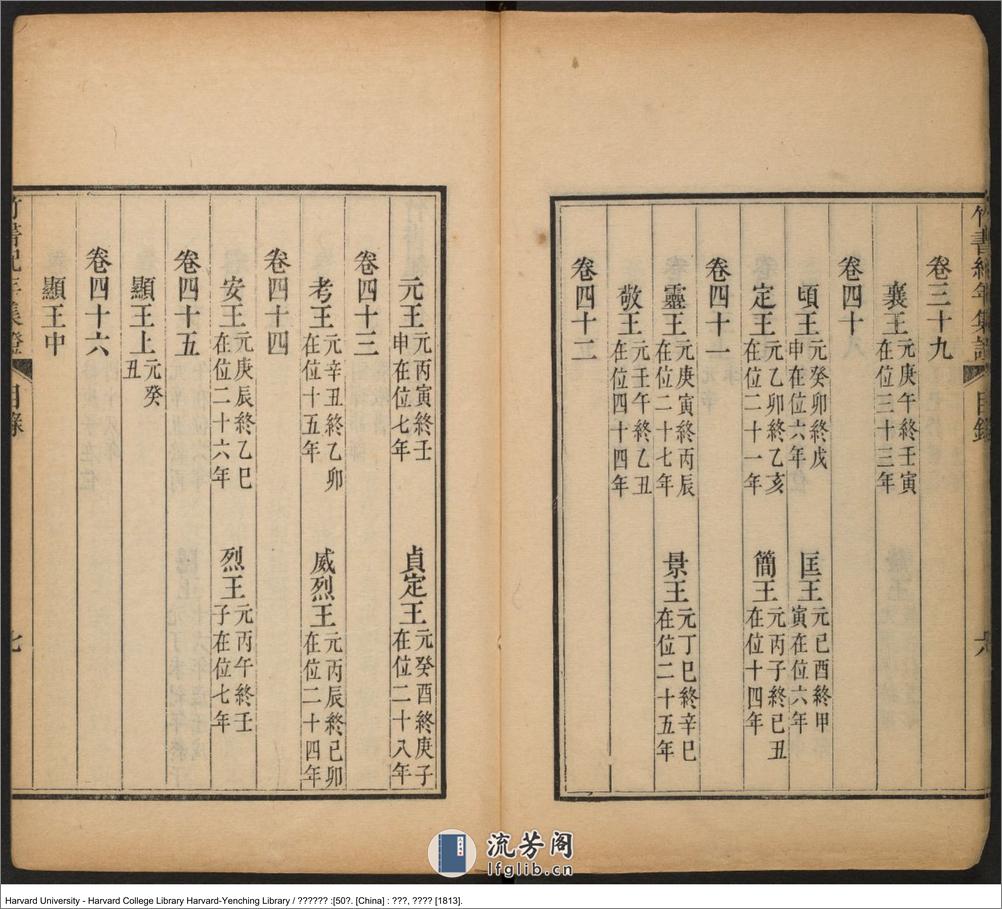 竹書紀年集證 目錄 六
卷三十九
襄王 元庚午終壬寅在位三十三年
卷四十
頃王 元癸卯終戊申在位六年 匡王 元己酉終甲寅在位六年
定王 元乙卯終乙亥在位二十一年 簡王 元丙子終己丑在位十四年
卷四十一
靈王 元庚寅終丙辰在位二十七年 景王 元丁巳終辛巳在位二十五年
敬王 元壬午終乙丑在位四十四年
卷四十二
元王 元丙寅終壬申在位七年 貞定王 元癸酉終庚子在位二十八年
卷四十三
考王 元辛丑終乙卯在位十五年 威烈王 元丙辰終己卯在位二十四年
卷四十四
安王 元庚辰終乙巳在位二十六年 烈王 元丙午終壬子在位七年
卷四十五
顯王上 元癸丑
卷四十六
顯王中
竹書紀年集證 目錄 七
流芳阁
lfglib.cn
Harvard University - Harvard College Library Harvard-Yenching Library / ?????? :[50?. [China] : ???, ???? [1813].